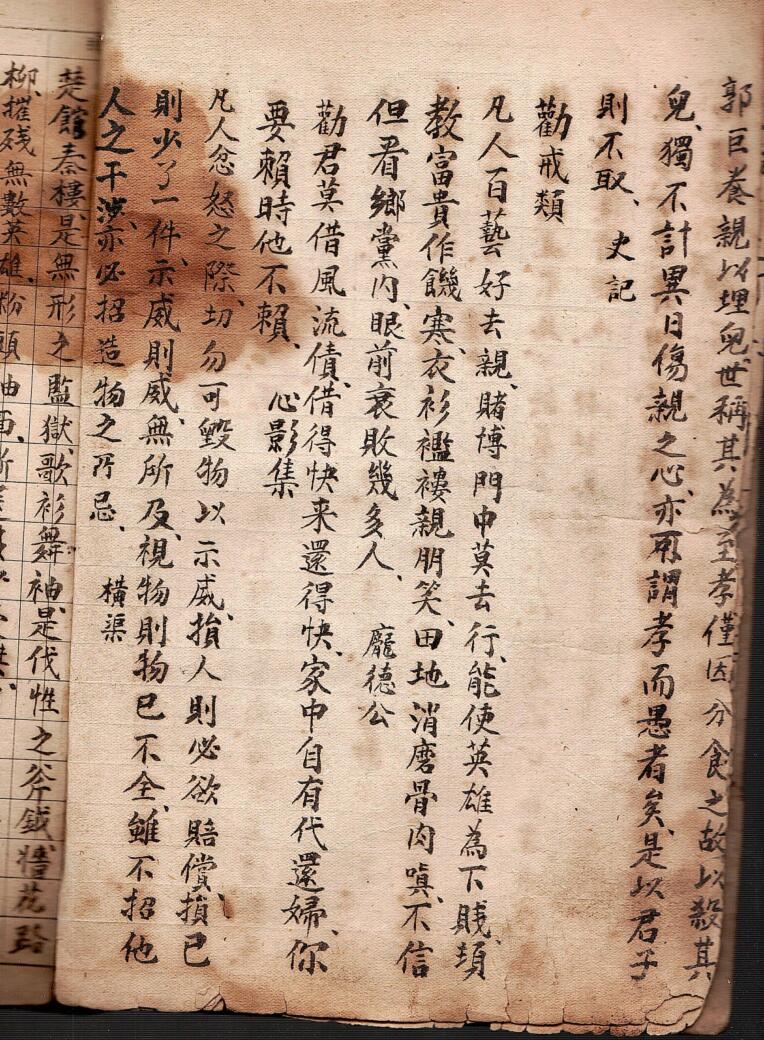 郭巨養親以埋兒、世稱其為至孝僅因分食之故、以殺其
兒、獨不計異日傷親之心、亦可謂孝而愚者矣、是以君子
則不取、史記
勸戒類
凡人百藝好去親、賭博門中莫去行、能使英雄為下賤、
教富貴作饑寒、衣衫襤褸親朋笑、田地消磨骨肉嗔、不信
但看鄉黨內、眼前衰敗幾多人、龐德公
勸君莫借風流債、借得快来還得快、家中自有代還婦、你
要賴時他不賴、心影集
凡人忿怒之際、切勿可毀物以示威、損人則必欲賠償、損己
則少了一件、示威則威、無所及、視物則物已不全、雖不招他
人之干涉、亦必招造物之所忌、橫渠
楚館秦樓、是無形之監獄、歌衫舞袖、是伐性之斧鉞、牆花路
柳、摧殘無數英雄、粉頭油面、